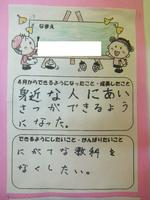 なまえ
4月からできるようになったこと・成長したこと
身近な人にあい
さつができるよう
になった。
できるようにしたいこと・がんばりたいこと
にがてな教科を
なくしたい。